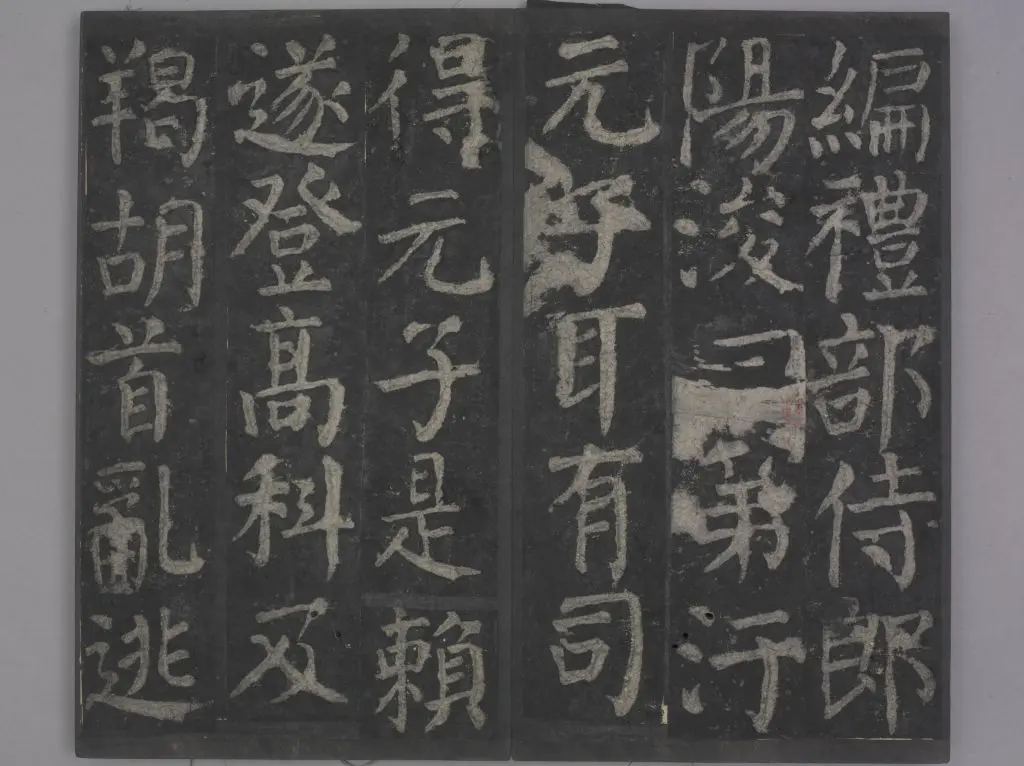 編禮部侍郎
陽浚第汙
元耳有司
得元子是賴
遂登高科及
羯胡首亂逃